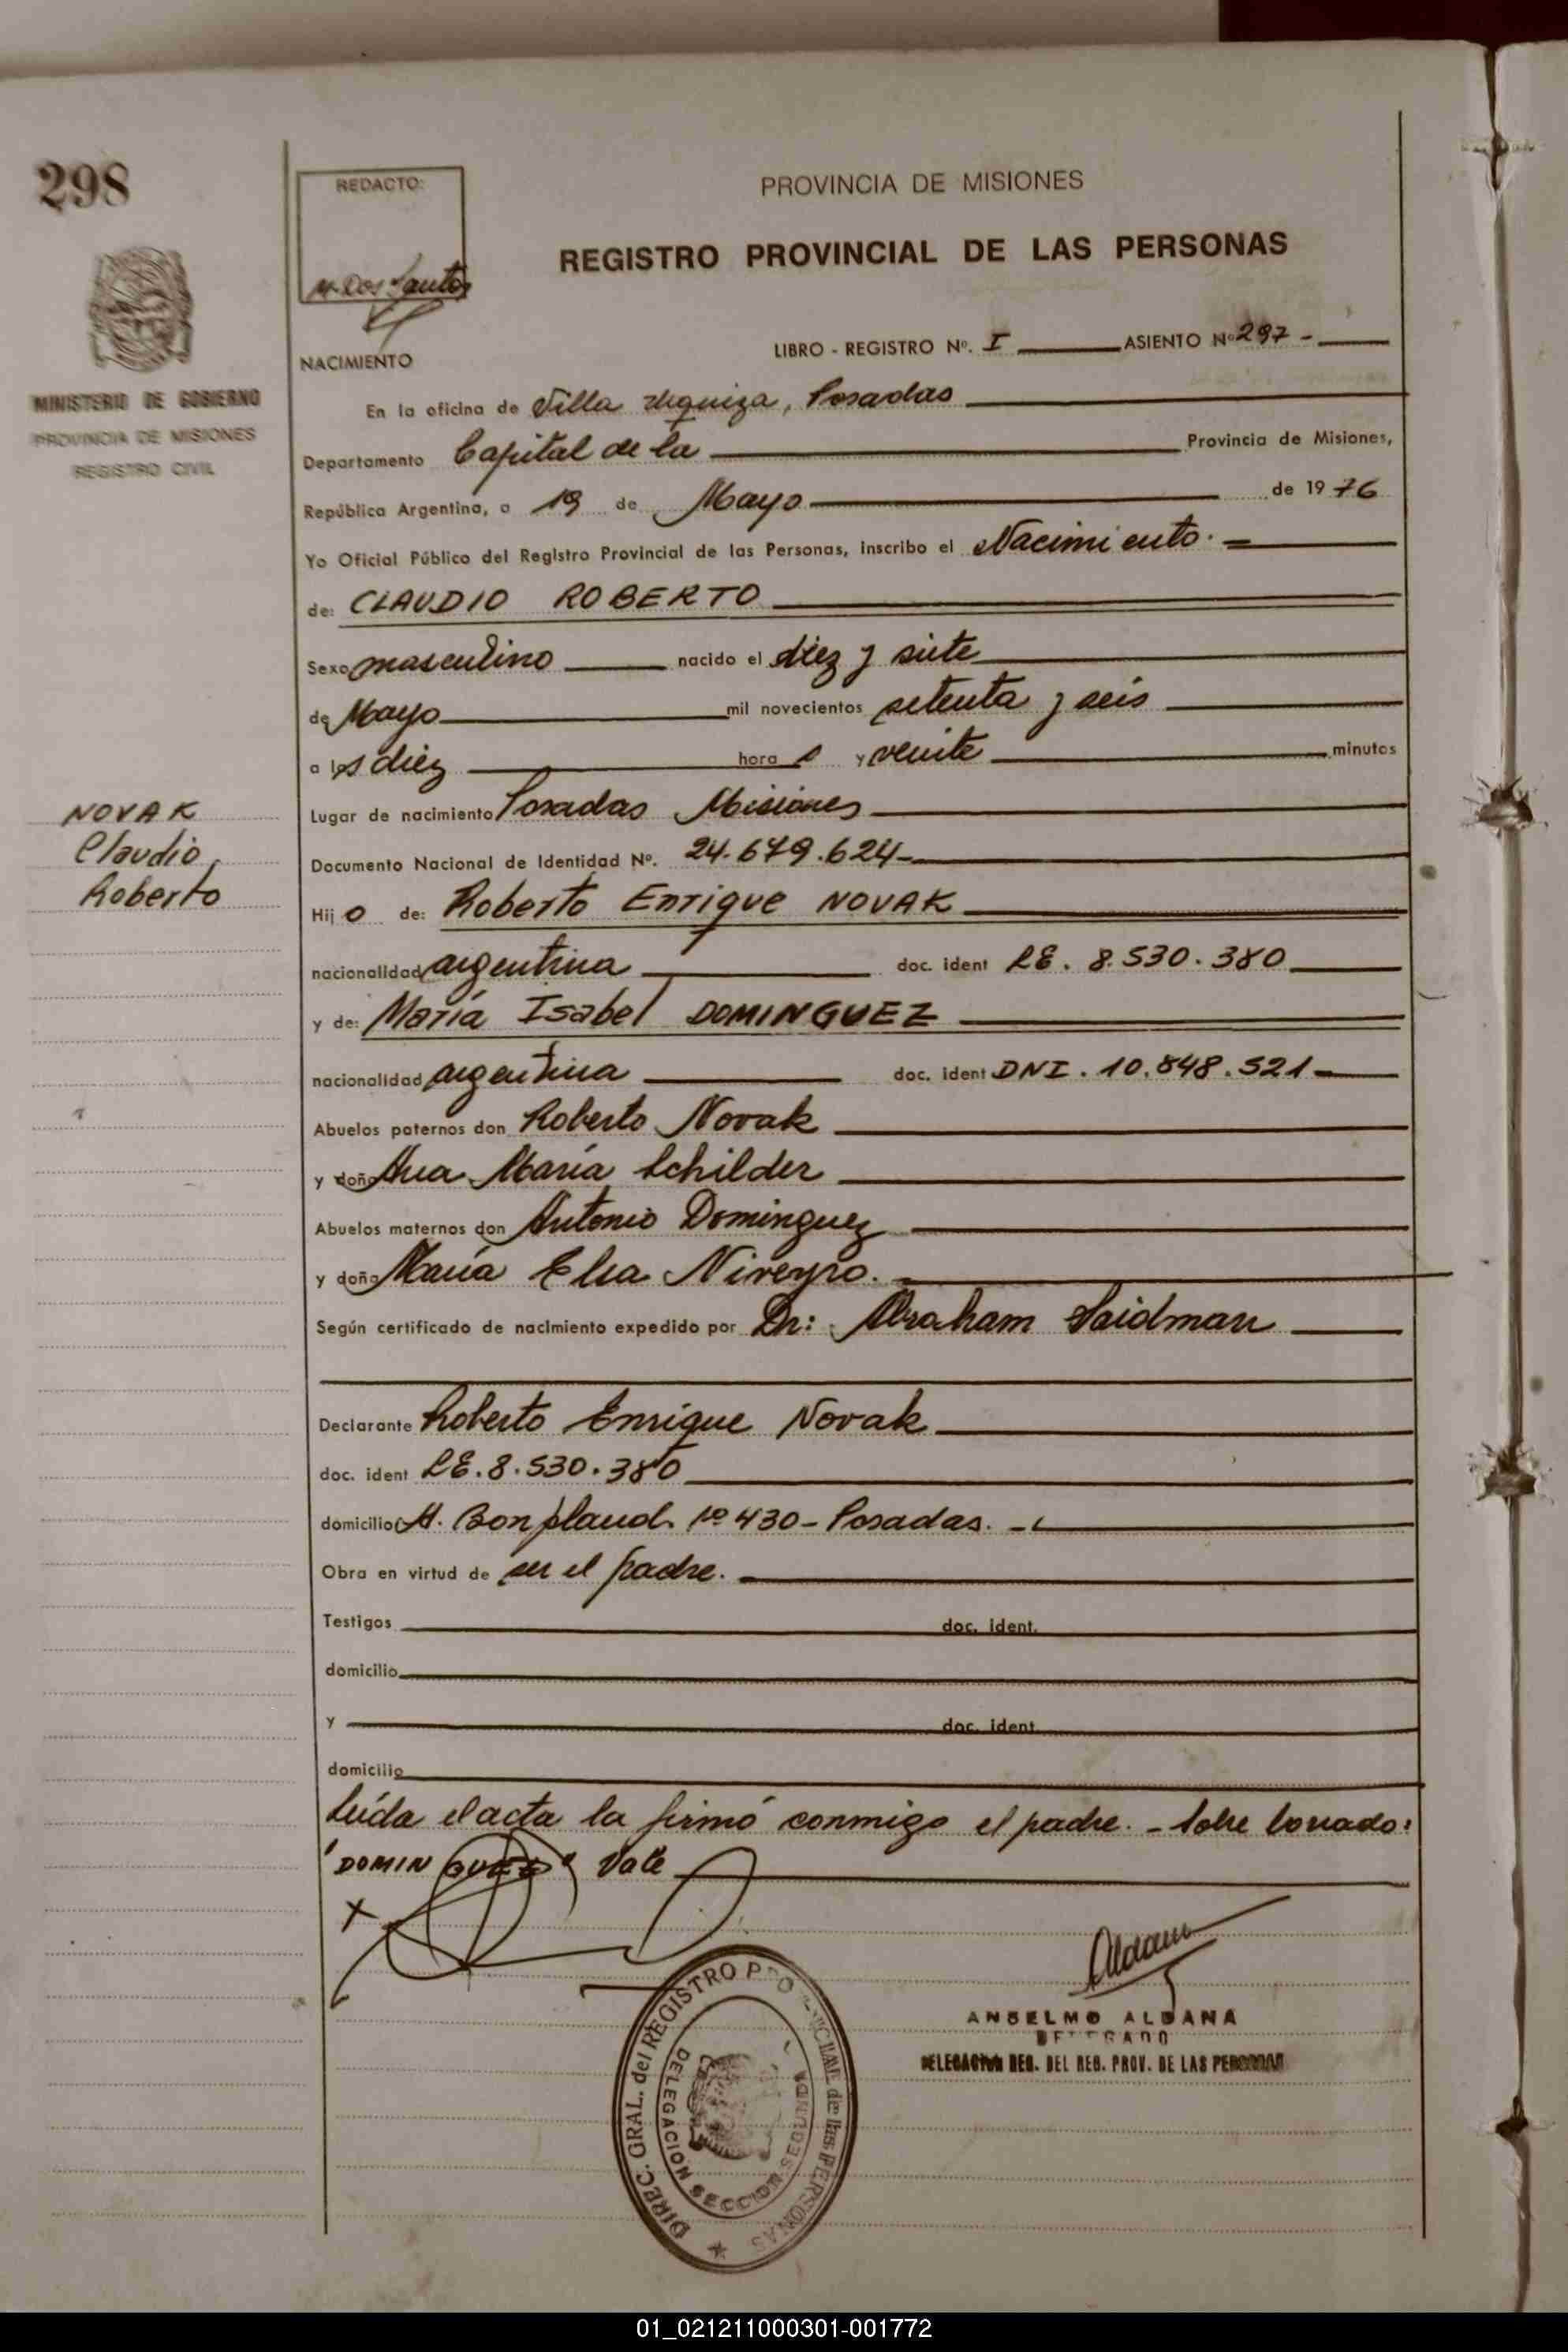 298
REDACTO:
M. Dos Santos
PROVINCIA DE MISIONES
REGISTRO PROVINCIAL DE LAS PERSONAS
MINISTERIO DE GOBIERNO
PROVINCIA DE MISIONES
REGISTRO CIVIL
NACIMIENTO
LIBRO - REGISTRO Nº. I ASIENTO Nº 297 -
En la oficina de Villa Urquiza, Posadas
Departamento Capital de la Provincia de Misiones,
República Argentina, a 19 de Mayo de 1976
Yo Oficial Público del Registro Provincial de las Personas, inscribo el Nacimiento. =
de: CLAUDIO ROBERTO
Sexo masculino nacido el diez y siete
de Mayo mil novecientos setenta y seis
a las diez hora s y veinte minutos
Lugar de nacimiento Posadas Misiones
Documento Nacional de Identidad Nº. 24.679.624-
NOVAK
Claudio
Roberto
Hijo de: Roberto Enrique NOVAK
nacionalidad argentina doc. ident LE. 8.530.380
y de: María Isabel DOMINGUEZ
nacionalidad argentina doc. ident DNI. 10.848.521-
Abuelos paternos don Roberto Novak
y doña Ana María Schilder
Abuelos maternos don Antonio Dominguez
y doña María Elsa Nireyro.
Según certificado de nacimiento expedido por Dr: Abraham Saidman
Declarante Roberto Enrique Novak
doc. ident LE. 8.530.380
domicilio A. Bonpland. Nº 430 - Posadas. -
Obra en virtud de ser el padre.
Testigos doc. ident.
domicilio
y doc. ident
domicilio
Leída el acta la firmó conmigo el padre. - Sobre borrado:
"DOMINGUEZ" Vale
X
Aldana
ANSELMO ALDANA
DELEGADO
DELEGACION REG. DEL REG. PROV. DE LAS PERSONAS
DIREC. GRAL. del REGISTRO PROVINCIAL de las PERSONAS
DELEGACION SECCION SEGUNDA
01_021211000301-001772